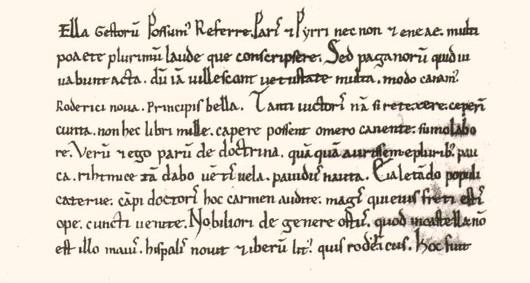 Ella gestorũ possumꝰ referre. parꝭ ⁊ pyrri nec non ⁊ eneae. multi
poaete plurimũ laude que conscripsere. Sed paganorũ quid iu
uabunt acta. dũ iã uillescant uetustate multa. modo canamꝰ
Roderici noua. Principis bella. Tanti uictorꝭ nã si retexere. ceperĩ
cunta. non hec libri mille. capere possent omero canente. sumo labo
re. Verũ ⁊ ego parũ de doctrina. quã quã aurissem e pluribꝰ. pau
ca. rihtmice tã dabo uẽtꝭ uela. pauidus nauta. Eia letãdo populi
caterue. cãpi doctorꝭ hoc carmen audite. magꝭ qui eius freti estꝭ
ope. cuncti uenite. Nobiliori de genere ortꝰ. quod in castella nõ
est illo maiꝰ. hispalis nouit ⁊ iberũ litꝰ quis rodericus. Hoc fuit